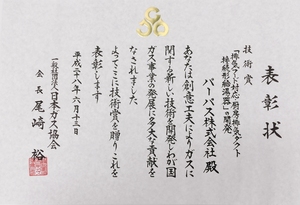 表彰状
技術賞
「排気ダクト対応 厨房排気ダクト
接続形給湯器」の開発
パーパス株式会社 殿
あなたは創意工夫によりガスに
関する新しい技術を開発しわが国
ガス事業の発展に多大な貢献を
なされました
よってここに技術賞を贈りこれを
表彰します
平成二十八年六月十三日
一般社団法人日本ガス協会
会長 尾崎 裕